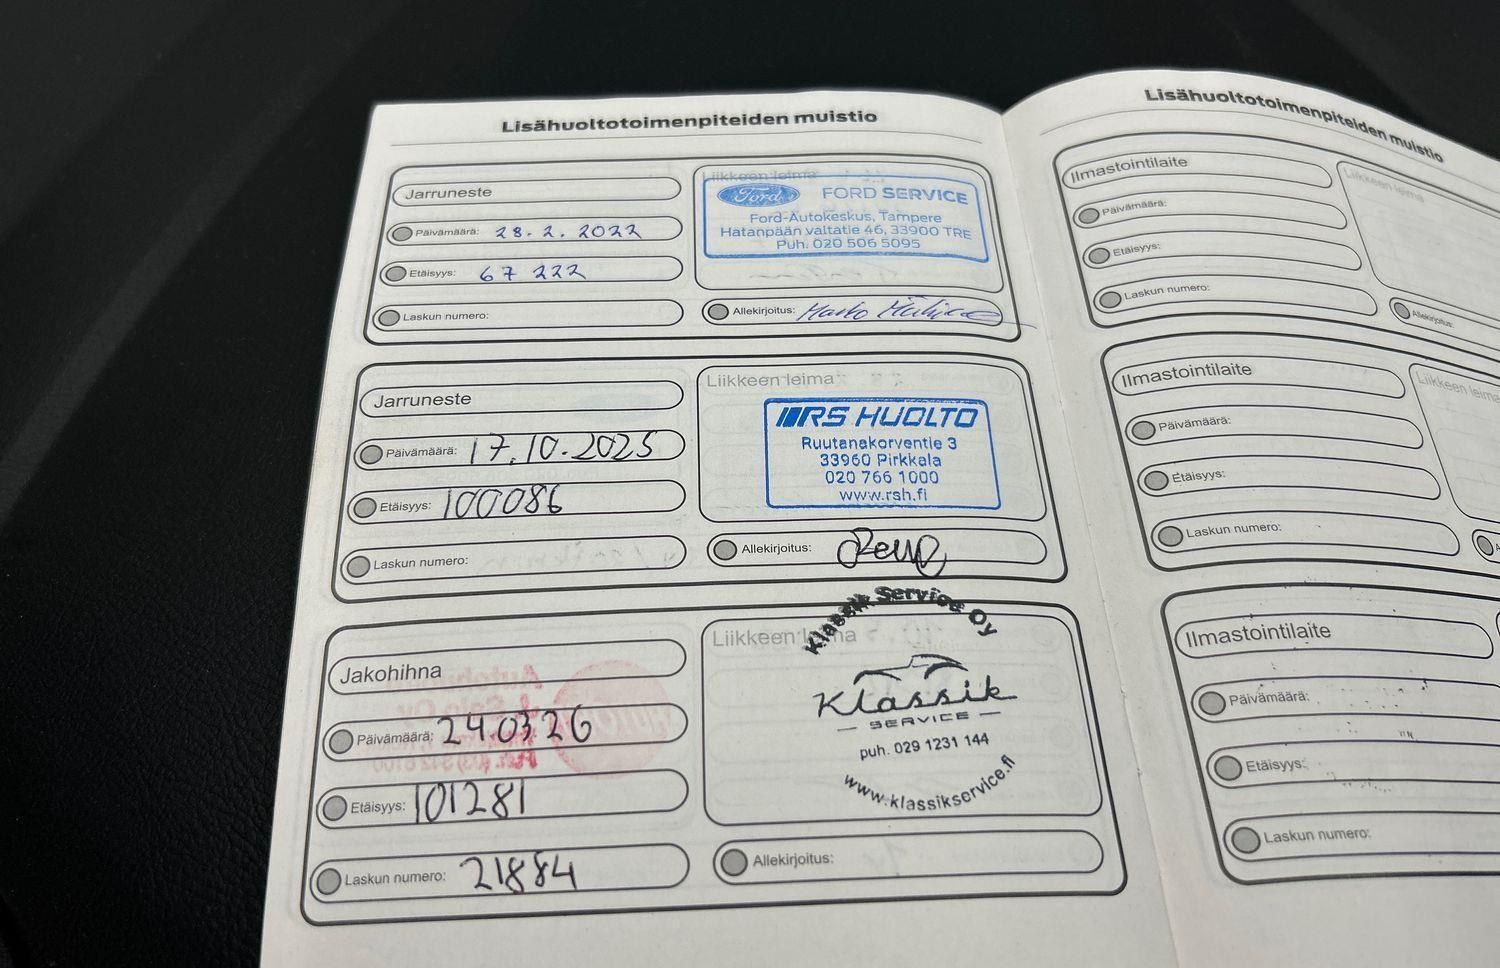 Lisähuoltotoimenpiteiden muistio
Jarruneste
Päivämäärä: 28.2.2022
Etäisyys: 67 222
Laskun numero:
Liikkeen leima
Ford FORD SERVICE
Ford-Autokeskus, Tampere
Hatanpään valtatie 46, 33900 TRE
Puh. 020 506 5095
Allekirjoitus:
Jarruneste
Päivämäärä: 17.10.2025
Etäisyys: 100086
Laskun numero:
Liikkeen leima
RS HUOLTO
Ruutanakorventie 3
33960 Pirkkala
020 766 1000
www.rsh.fi
Allekirjoitus:
Jakohihna
Päivämäärä: 240326
Etäisyys: 101281
Laskun numero: 21884
Liikkeen leima
Klassik Service Oy
Klassik
SERVICE
puh. 029 1231 144
www.klassikservice.fi
Allekirjoitus:
Lisähuoltotoimenpiteiden muistio
Ilmastointilaite
Päivämäärä:
Etäisyys:
Laskun numero:
Liikkeen leima
Allekirjoitus:
Ilmastointilaite
Päivämäärä:
Etäisyys:
Laskun numero:
Liikkeen leima
Ilmastointilaite
Päivämäärä:
Etäisyys:
Laskun numero: